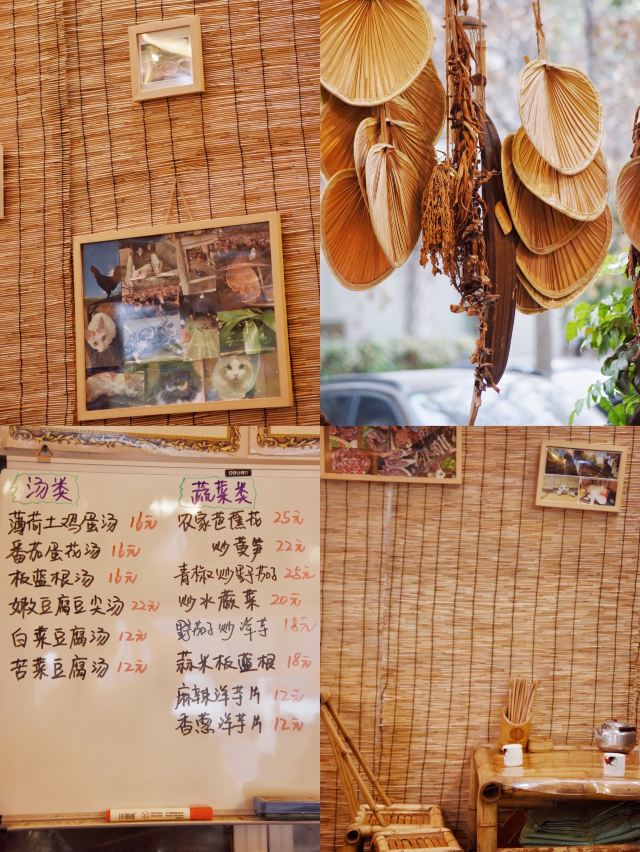 deli
汤类
薄荷土鸡蛋汤 16元
番茄蛋花汤 16元
板蓝根汤 16元
嫩豆腐豆尖汤 22元
白菜豆腐汤 12元
苦菜豆腐汤 12元
蔬菜类
农家芭蕉花 25元
炒黄笋 22元
青椒炒野茄子 25元
炒水蕨菜 20元
野茄子炒洋芋 18元
蒜米板蓝根 18元
麻辣洋芋片 12元
香葱洋芋片 12元